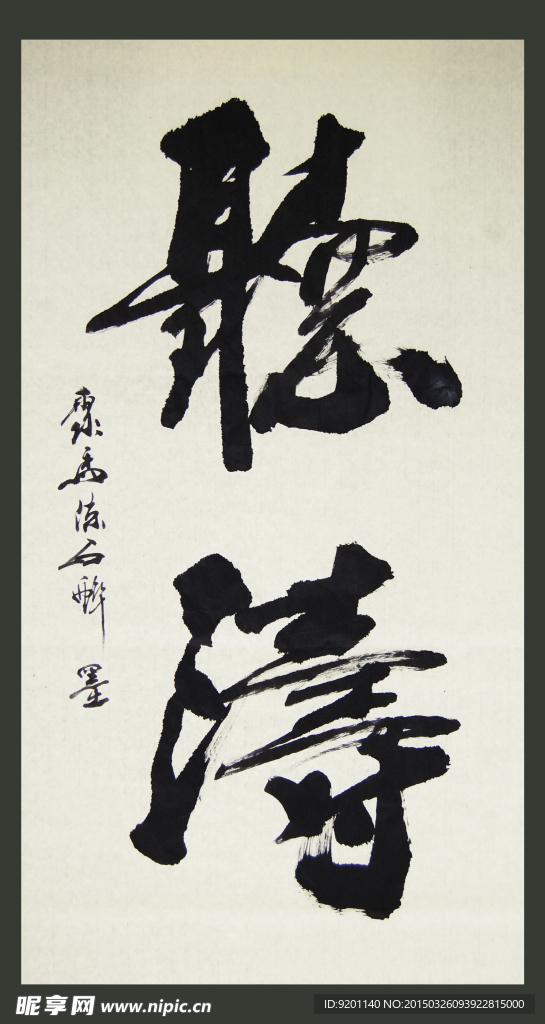 聽濤
石
墨
昵享网 www.nipic.cn
ID:9201140 NO:20150326093922815000